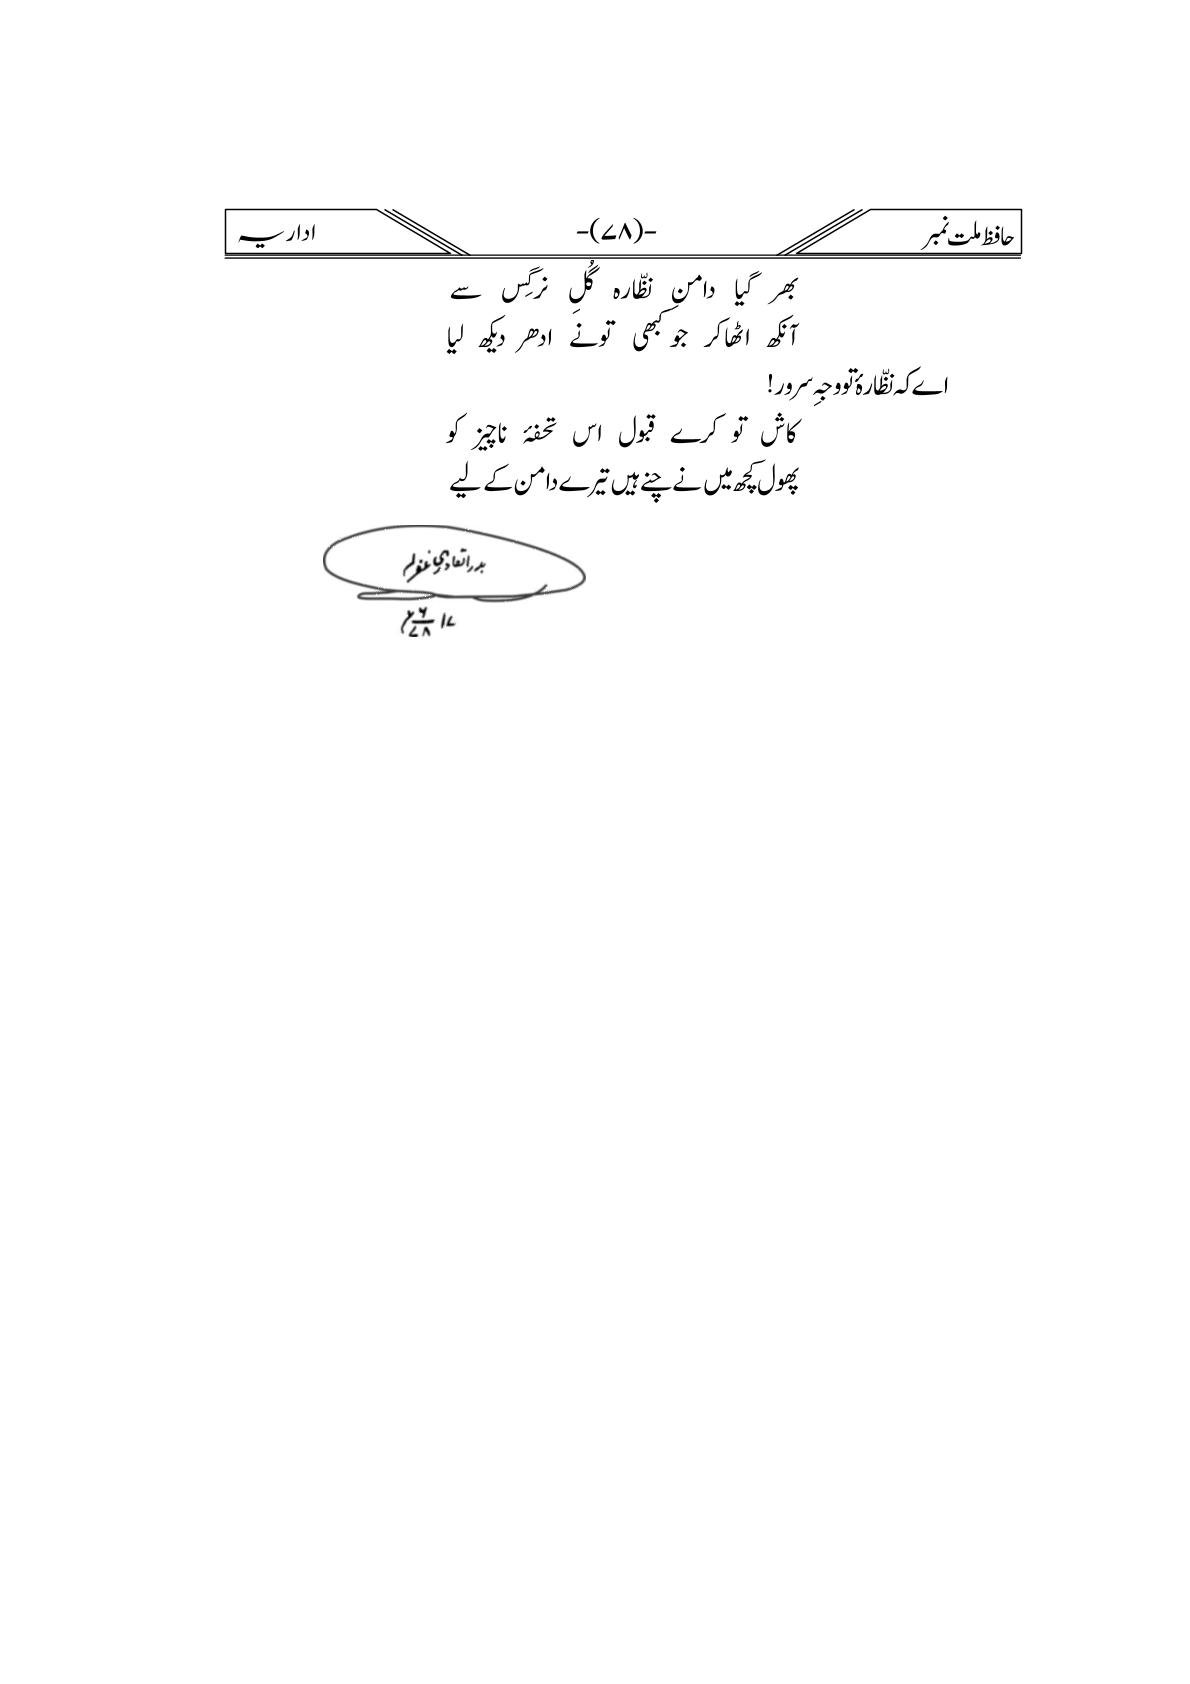 حافظ ملت نمبر -(۷۸)- اداریہ
بھر گیا دامنِ نظّارہ گُلِ نرگِس سے
آنکھ اٹھاکر جو کبھی تونے ادھر دیکھ لیا
اے کہ نظّارۂ تو وجہِ سرور!
کاش تو کرے قبول اس تحفۂ ناچیز کو
پھول کچھ میں نے چنے ہیں تیرے دامن کے لیے
بدر القادری غفرلہ